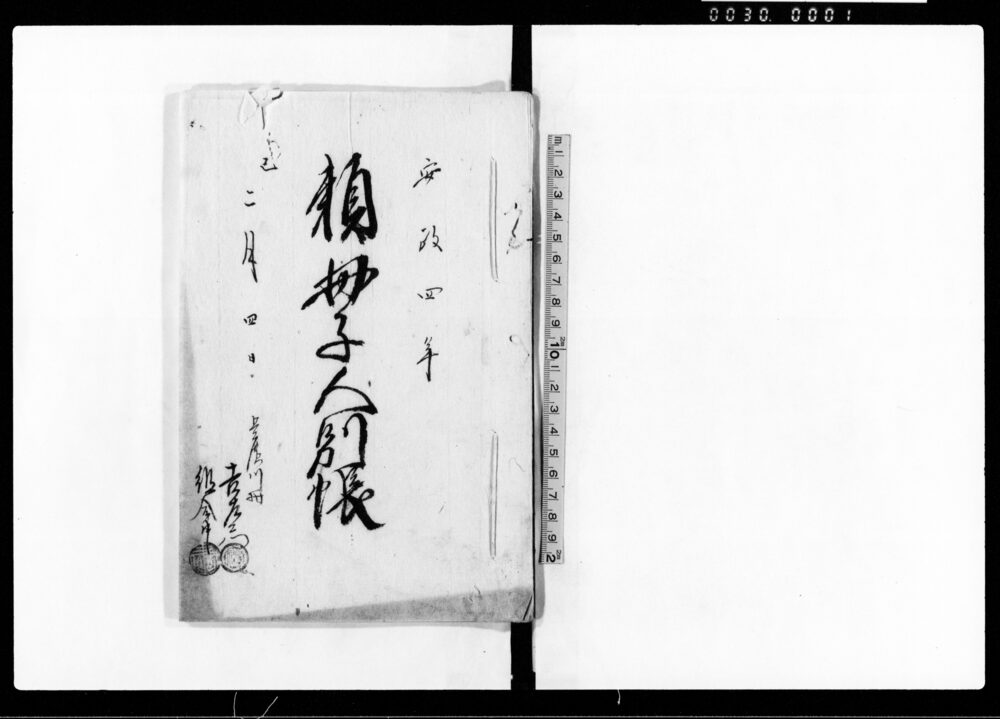 0030. 0001
安政四年
頼母子人別帳
巳二月四日
吉左衛門
組合中
m 1 2 3 4 5 6 7 8 9 10 1 2 3 4 5 6 7 8 9 2